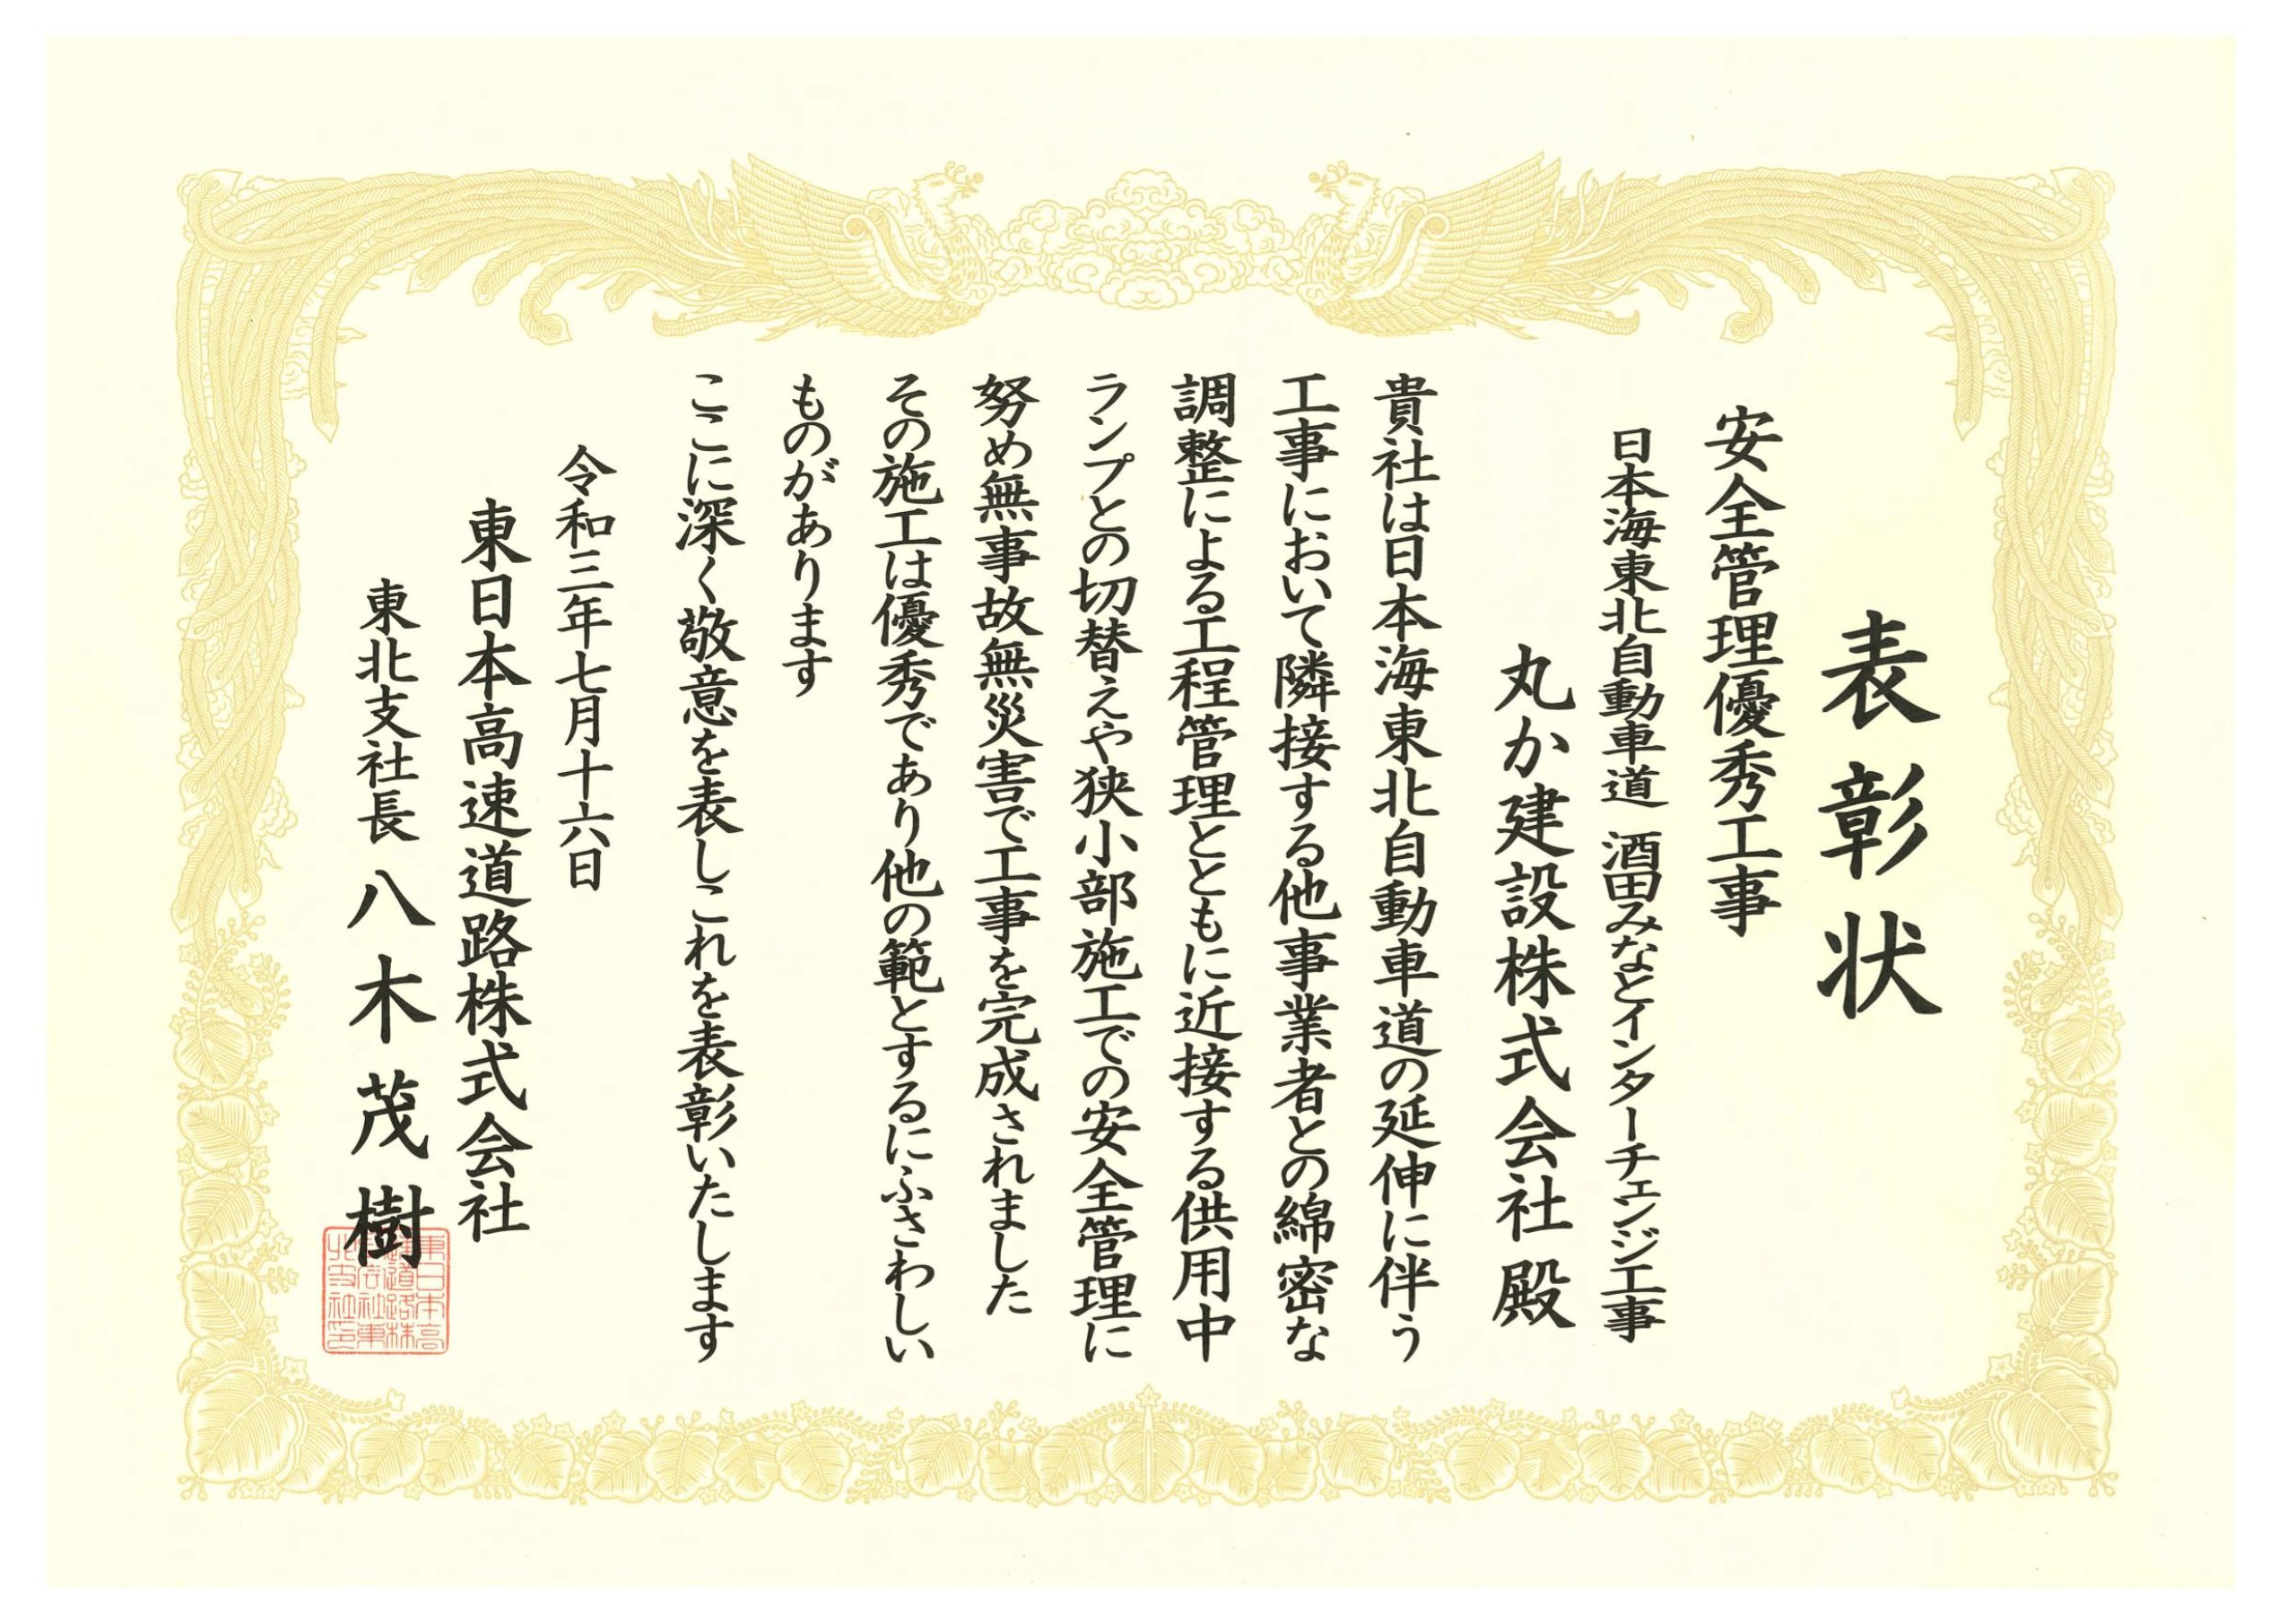 表彰状
安全管理優秀工事
日本海東北自動車道 酒田みなとインターチェンジ工事
丸か建設株式会社 殿
貴社は日本海東北自動車道の延伸に伴う
工事において隣接する他事業者との綿密な
調整による工程管理とともに近接する供用中
ランプとの切替えや狭小部施工での安全管理に
努め無事故無災害で工事を完成されました
その施工は優秀であり他の範とするにふさわしい
ものがあります
ここに深く敬意を表しこれを表彰いたします
令和三年七月十六日
東日本高速道路株式会社
東北支社長 八木茂樹
東日本高
速道路株
式会社東
北支社印